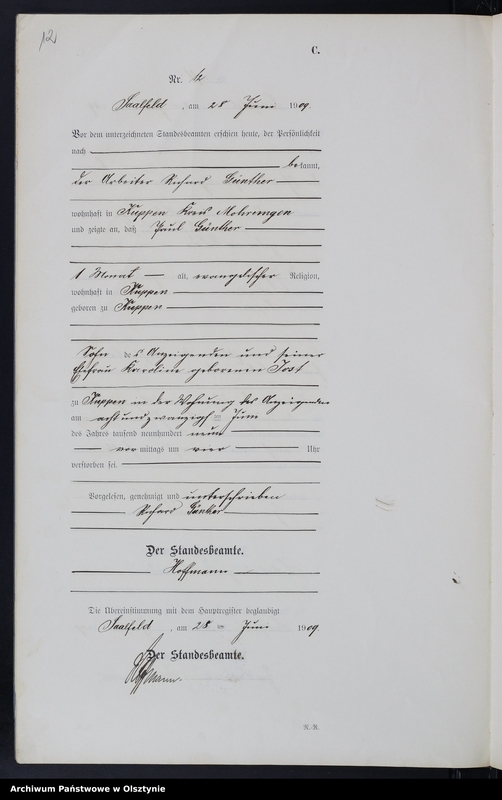 12
C.
Nr. 12
Saalfeld, am 28 Juni 1909.
Vor dem unterzeichneten Standesbeamten erschien heute, der Persönlichkeit
nach
bekannt,
der Arbeiter Richard Günther
wohnhaft in Kuppen Kreis Mohrungen
und zeigte an, daß Paul Günther
1 Monat alt, evangelischer Religion,
wohnhaft in Kuppen
geboren zu Kuppen
Sohn des Anzeigenden und seiner
Ehefrau Karoline geborenen Jost
zu Kuppen in der Wohnung des Anzeigenden
am achtundzwanzigsten Juni
des Jahres tausend neunhundert neun
vormittags um vier Uhr
verstorben sei.
Vorgelesen, genehmigt und unterschrieben
Richard Günther
Der Standesbeamte.
Hoffmann
Die Übereinstimmung mit dem Hauptregister beglaubigt
Saalfeld, am 28 Juni 1909.
Der Standesbeamte.
Hoffmann.
R.-R.
Archiwum Państwowe w Olsztynie